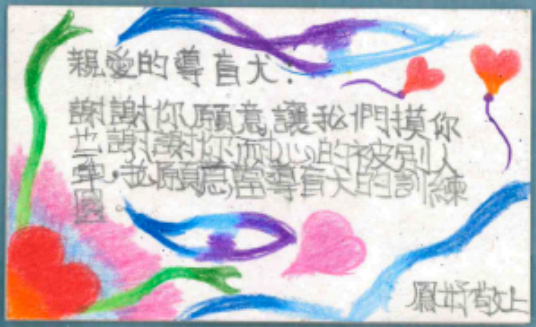 親愛的導盲犬：
謝謝你願意讓我們摸你
也謝謝你耐心的被別人
牽，我願意當導盲犬的訓練
團。
敬上